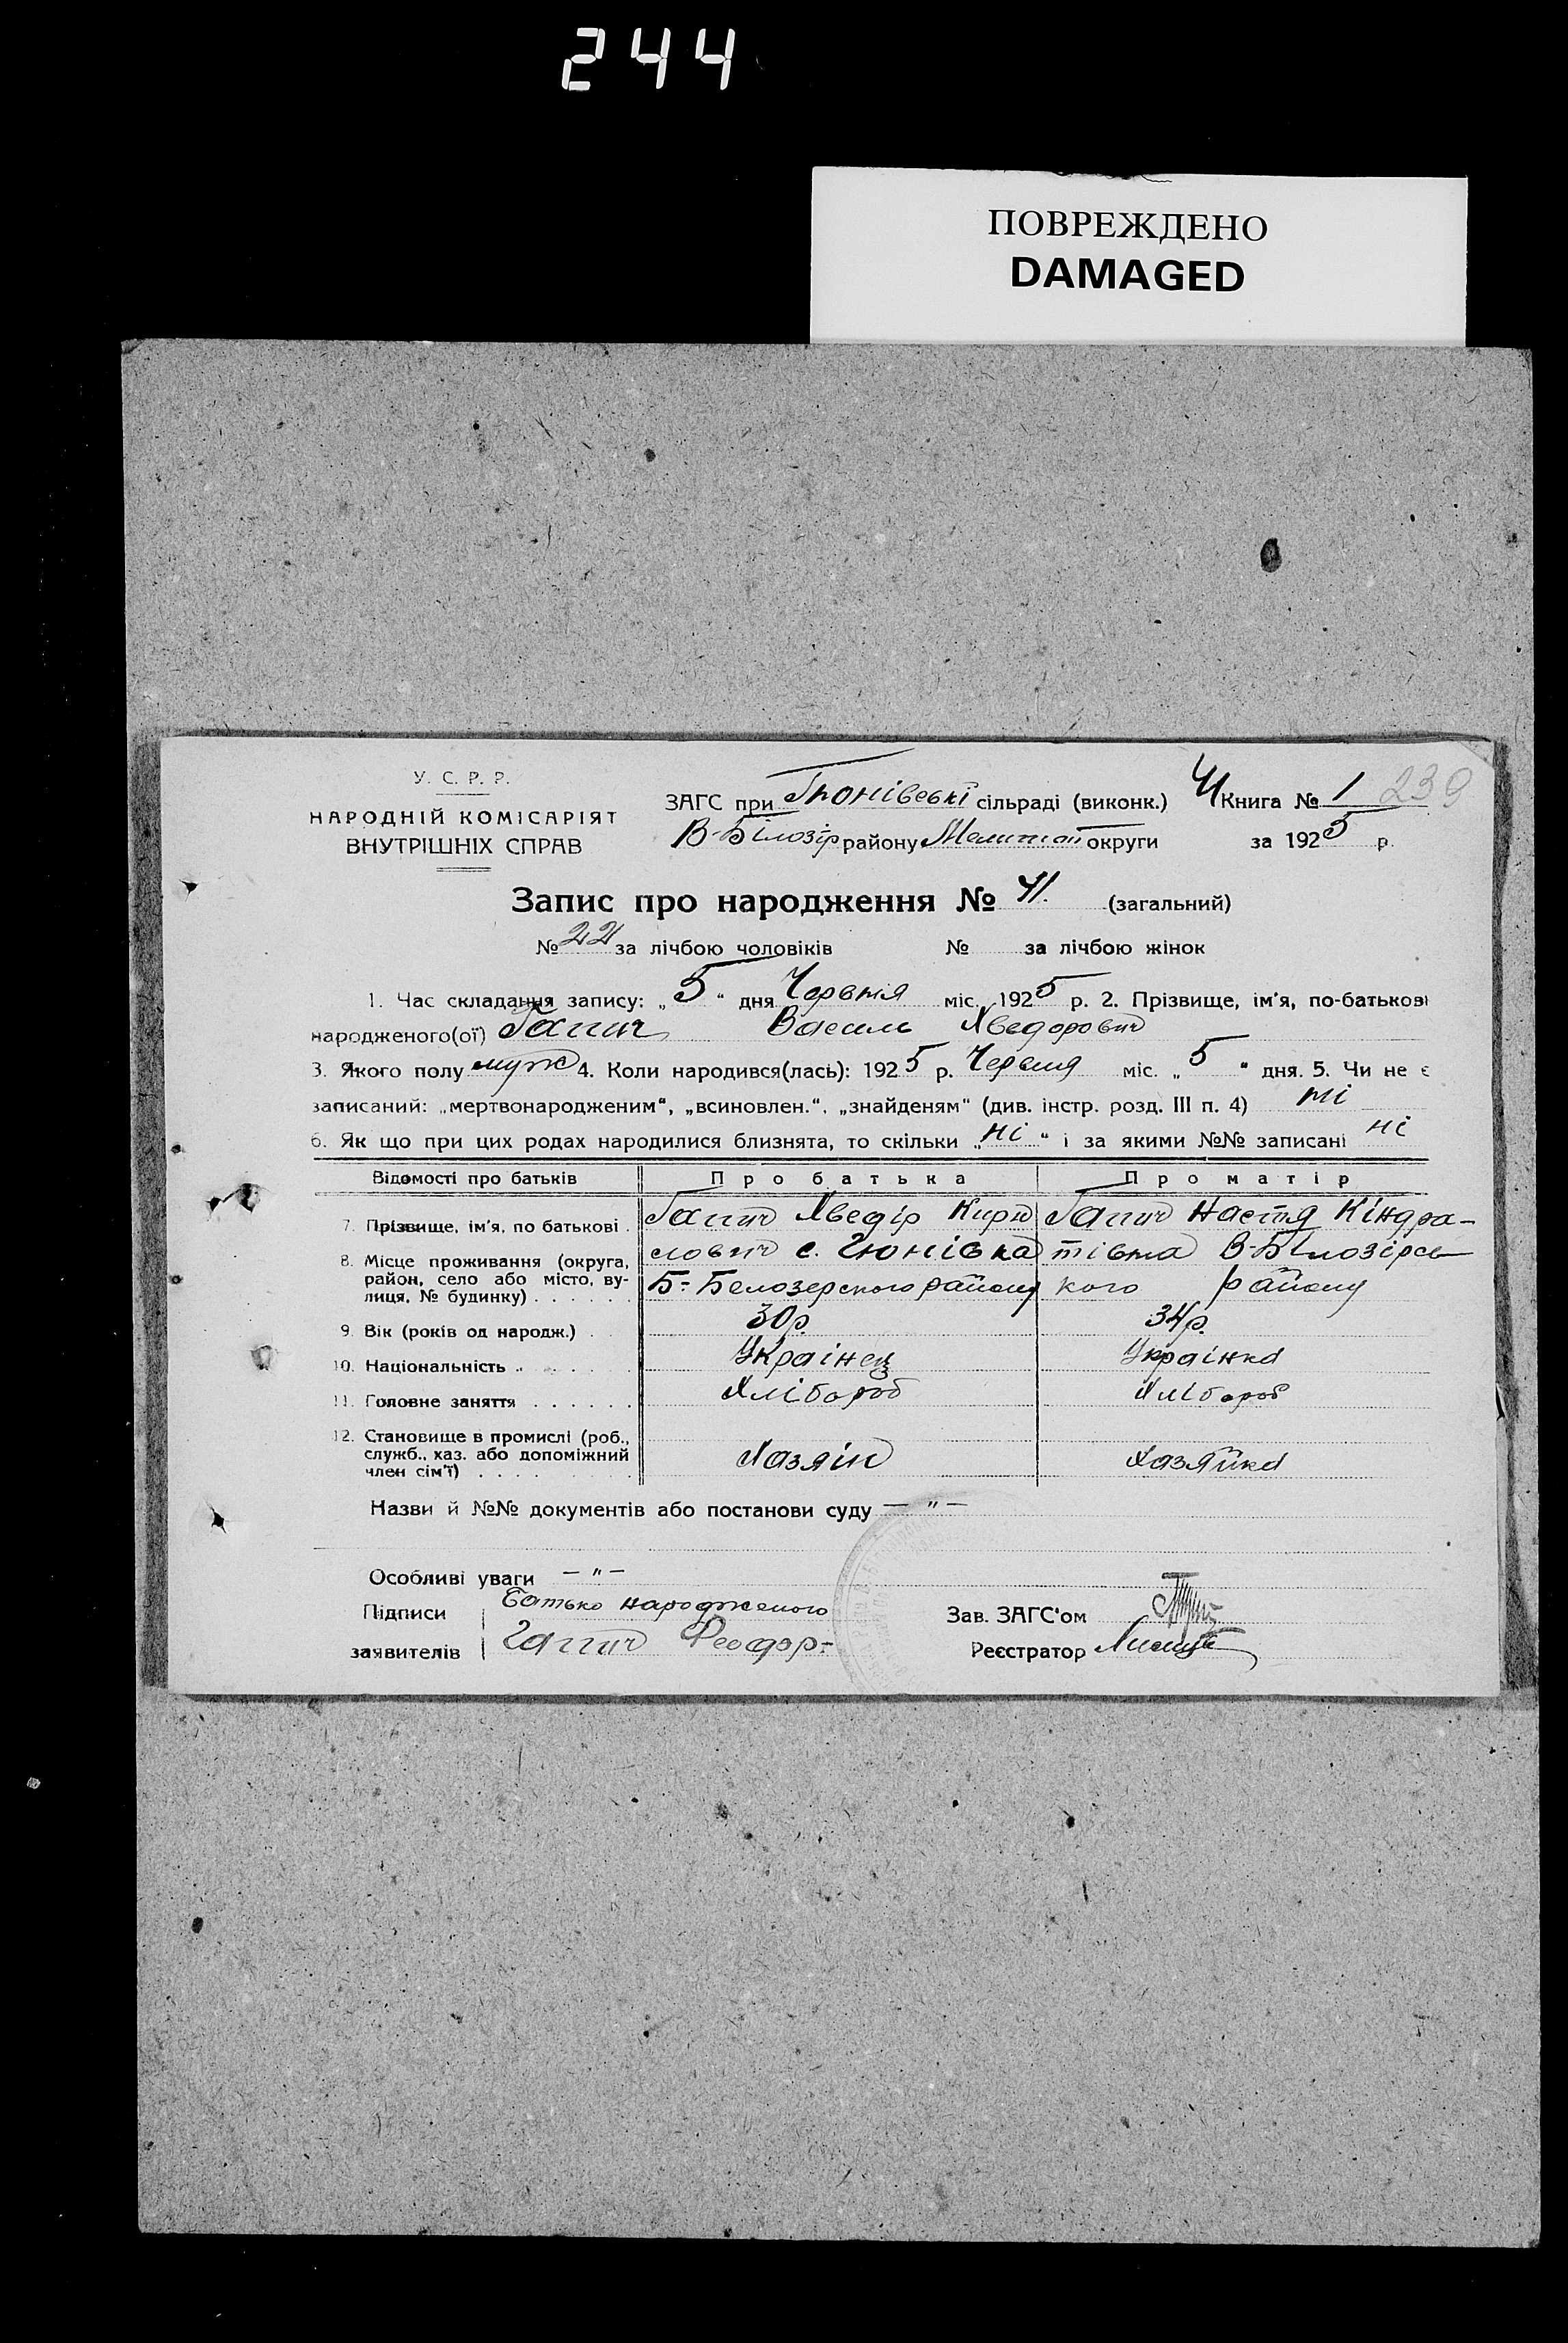 244
ПОВРЕЖДЕНО
DAMAGED
У. С. Р. Р.
НАРОДНІЙ КОМІСАРІЯТ
ВНУТРІШНІХ СПРАВ
ЗАГС при сільраді (виконк.) Книга № 1 239
В-Білозір району Мелитоп округи за 1925 р.
Запис про народження № 41. (загальний)
№ 22 за лічбою чоловіків № за лічбою жінок
1. Час складання запису: „5“ дня Червня міс. 1925 р. 2. Прізвище, ім'я, по-батькові
народженого(ої) Гапич Василь Хведорович
3. Якого полу муж 4. Коли народився(лась): 1925 р. Червня міс. „5“ дня. 5. Чи не є
записаний: „мертвонародженим“, „всиновлен.“, „знайденям“ (див. інстр. розд. III п. 4) ні
6. Як що при цих родах народилися близнята, то скільки „ні“ і за якими №№ записані ні
Відомості про батьків Про батька Про матір
7. Прізвище, ім'я, по батькові . Гапич Хведір Кири Гапич Настя Кіндра-
8. Місце проживання (округа, район, село або місто, вулиця, № будинку) . . . . . . лович с. Гюнівка тівна В-Білозірсь
Б-Белозерского району кого району
9. Вік (років од народж.) . . 30р. 34р.
10. Національність . . . . . Українец Українка
11. Головне заняття . . . . . . Хлібороб Хлібороб
12. Становище в промислі (роб., служб., хаз. або допоміжний член сім'ї) . . . . Хазяїн Хазяйка
Назви й №№ документів або постанови суду — " —
Особливі уваги — " —
Підписи Батько народженого Зав. ЗАГС'ом
заявителів Гапич Феодор- Реєстратор